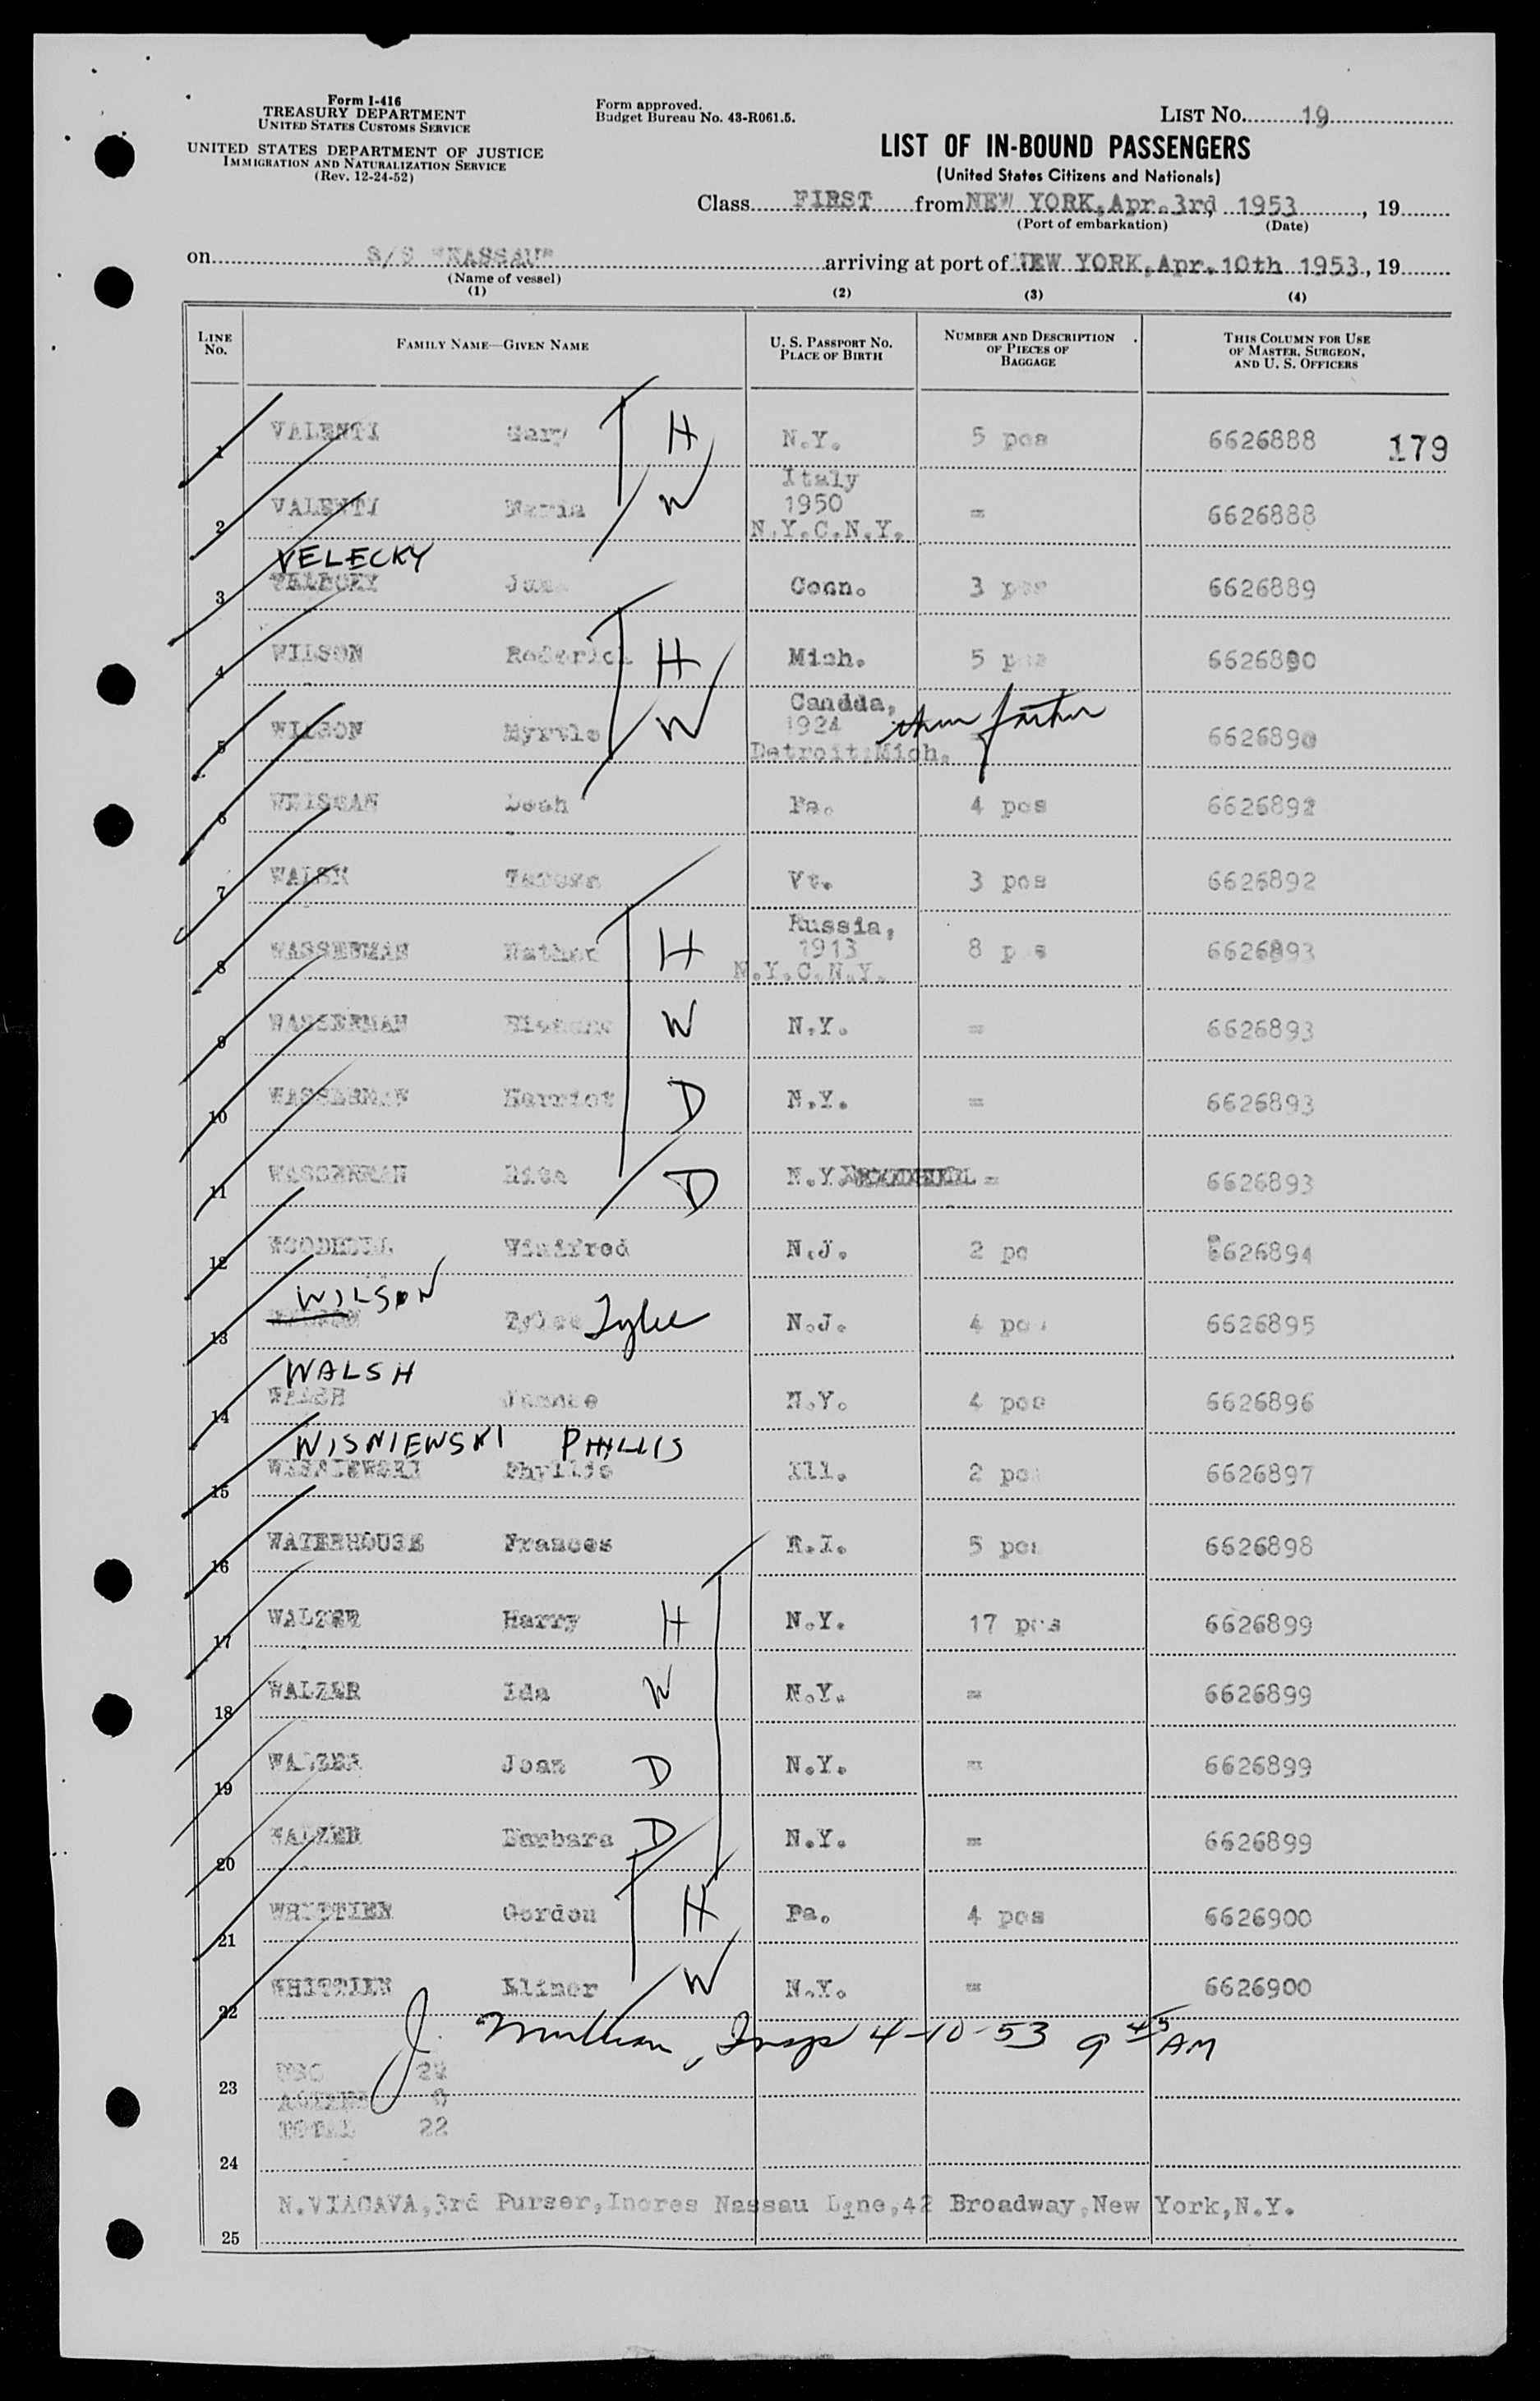 Form I-416
TREASURY DEPARTMENT
UNITED STATES CUSTOMS SERVICE
UNITED STATES DEPARTMENT OF JUSTICE
IMMIGRATION AND NATURALIZATION SERVICE
(Rev. 12-24-52)
Form approved.
Budget Bureau No. 43-R061.5.
LIST NO. 19
LIST OF IN-BOUND PASSENGERS
(United States Citizens and Nationals)
Class FIRST from NEW YORK, Apr. 3rd, 1953, 19
(Port of embarkation) (Date)
on S/S "NASSAU" arriving at port of NEW YORK, Apr. 10th 1953, 19
(Name of vessel)
(1) (2) (3) (4)
LINE No. FAMILY NAME—GIVEN NAME U. S. PASSPORT NO. PLACE OF BIRTH NUMBER AND DESCRIPTION OF PIECES OF BAGGAGE THIS COLUMN FOR USE OF MASTER, SURGEON, AND U. S. OFFICERS
1 VALENTI Gary H N.Y. 5 pcs 6626888 179
2 VALENTI Maria W Italy 1950 N.Y.C.N.Y. = 6626888
VELECKY
3 Conn. 3 pcs 6626889
4 WILSON Roderick H Mich. 5 pcs 6626890
5 WILSON Myrtle W Candda, 1924 Detroit, Mich. thru father 6626890
6 WEISMAN Leah Pa. 4 pcs 6626892
7 WALSH Teresa Vt. 3 pcs 6626892
8 WASSERMAN Nathan H Russia, 1913 N.Y.C.N.Y. 8 pcs 6626893
9 WASSERMAN W N.Y. = 6626893
10 WASSERMAN Harriet D N.Y. = 6626893
11 WASSERMAN Rita D N.Y. = 6626893
12 Winifred N.J. 2 pc 6626894
WILSON
13 Tylee N.J. 4 pcs 6626895
WALSH
14 WALSH N.Y. 4 pcs 6626896
WISNIEWSKI PHYLLIS
15 WISNIEWSKI Phyllis Ill. 2 pcs 6626897
16 WATERHOUSE Frances R.I. 5 pcs 6626898
17 WALZER Harry H N.Y. 17 pcs 6626899
18 WALZER Ida W N.Y. = 6626899
19 WALZER Joan D N.Y. = 6626899
20 WALZER Barbara D N.Y. = 6626899
21 WHITTIER Gordon H Pa. 4 pcs 6626900
22 WHITTIER Elinor W N.Y. = 6626900
J. Insp 4-10-53 9 45 AM
23 USC 22
ALIENS 0
TOTAL 22
24
N.VIACAVA, 3rd Purser, Incres Nassau Line, 42 Broadway, New York, N.Y.
25